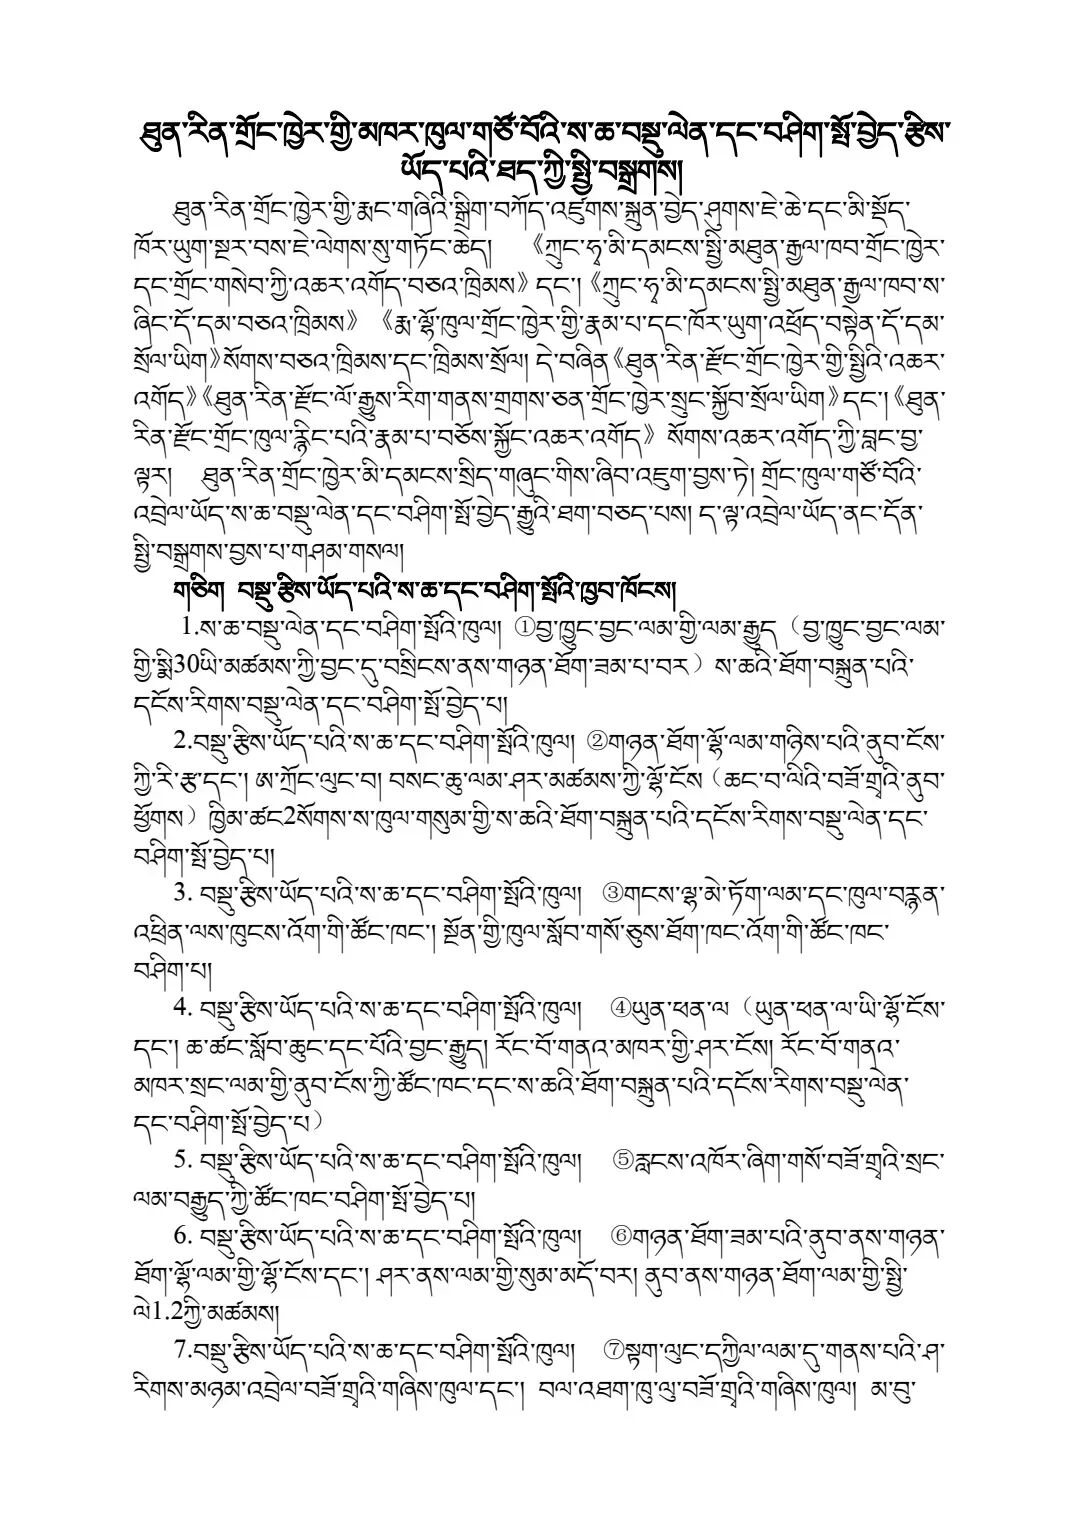 ཐུན་རིན་གྲོང་ཁྱེར་གྱི་མཁར་ཁུལ་གཙོ་བོའི་ས་ཆ་བསྡུ་ལེན་དང་བཤིག་སྤོ་བྱེད་རྩིས་
ཡོད་པའི་ཐད་ཀྱི་སྤྱི་བསྒྲགས།
ཐུན་རིན་གྲོང་ཁྱེར་གྱི་རྨང་གཞིའི་སྒྲིག་བཀོད་འཛུགས་སྐྲུན་བྱེད་ཤུགས་ཇེ་ཆེ་དང་མི་སྡོད་
ཁོར་ཡུག་སྔར་བས་ཇེ་ལེགས་སུ་གཏོང་ཆེད། 《ཀྲུང་ཧྭ་མི་དམངས་སྤྱི་མཐུན་རྒྱལ་ཁབ་གྲོང་ཁྱེར་
དང་གྲོང་གསེབ་ཀྱི་འཆར་འགོད་བཅའ་ཁྲིམས》དང་།《ཀྲུང་ཧྭ་མི་དམངས་སྤྱི་མཐུན་རྒྱལ་ཁབ་ས་
ཞིང་དོ་དམ་བཅའ་ཁྲིམས》 《རྨ་ལྷོ་ཁུལ་གྲོང་ཁྱེར་གྱི་རྣམ་པ་དང་ཁོར་ཡུག་འཕྲོད་བསྟེན་དོ་དམ་
སྲོལ་ཡིག》སོགས་བཅའ་ཁྲིམས་དང་ཁྲིམས་སྲོལ། དེ་བཞིན《ཐུན་རིན་རྫོང་གྲོང་ཁྱེར་གྱི་སྤྱིའི་འཆར་
འགོད》《ཐུན་རིན་རྫོང་ལོ་རྒྱུས་རིག་གནས་གྲགས་ཅན་གྲོང་ཁྱེར་སྲུང་སྐྱོབ་སྲོལ་ཡིག》དང་།《ཐུན་
རིན་རྫོང་གྲོང་ཁུལ་རྙིང་པའི་རྣམ་པ་བཅོས་སྐྱོང་འཆར་འགོད》སོགས་འཆར་འགོད་ཀྱི་བླང་བྱ་
ལྟར། ཐུན་རིན་གྲོང་ཁྱེར་མི་དམངས་སྲིད་གཞུང་གིས་ཞིབ་འཇུག་བྱས་ཏེ། གྲོང་ཁུལ་གཙོ་བོའི་
འབྲེལ་ཡོད་ས་ཆ་བསྡུ་ལེན་དང་བཤིག་སྤོ་བྱེད་རྒྱུའི་ཐག་བཅད་པས། ད་ལྟ་འབྲེལ་ཡོད་ནང་དོན་
སྤྱི་བསྒྲགས་བྱས་པ་གཤམ་གསལ།
གཅིག བསྡུ་རྩིས་ཡོད་པའི་ས་ཆ་དང་བཤིག་སྤོའི་ཁྱབ་ཁོངས།
1.ས་ཆ་བསྡུ་ལེན་དང་བཤིག་སྤོའི་ཁུལ། ①བྱ་ཁྱུང་བྱང་ལམ་གྱི་ལམ་རྒྱུད（བྱ་ཁྱུང་བྱང་ལམ་
གྱི་སྨི30ཡི་མཚམས་ཀྱི་བྱང་དུ་བསྲིངས་ནས་གཉན་ཐོག་ཟམ་པ་བར）ས་ཆའི་ཐོག་བསྐྲུན་པའི་
དངོས་རིགས་བསྡུ་ལེན་དང་བཤིག་སྤོ་བྱེད་པ།
2.བསྡུ་རྩིས་ཡོད་པའི་ས་ཆ་དང་བཤིག་སྤོའི་ཁུལ། ②གཉན་ཐོག་ལྷོ་ལམ་གཉིས་པའི་ནུབ་ངོས་
ཀྱི་རི་རྩ་དང་། ཨ་ཀྲོང་ལུང་བ། བསང་ཆུ་ལམ་ཤར་མཚམས་ཀྱི་ལྷོ་ངོས（ཆང་བ་ལིའི་བཟོ་གྲྭའི་ནུབ་
ཕྱོགས）ཁྱིམ་ཚང2སོགས་ས་ཁུལ་གསུམ་གྱི་ས་ཆའི་ཐོག་བསྐྲུན་པའི་དངོས་རིགས་བསྡུ་ལེན་དང་
བཤིག་སྤོ་བྱེད་པ།
3. བསྡུ་རྩིས་ཡོད་པའི་ས་ཆ་དང་བཤིག་སྤོའི་ཁུལ། ③གངས་ལྷ་མེ་ཏོག་ལམ་དང་ཁུལ་བརྙན་
འཕྲིན་ལས་ཁུངས་འོག་གི་ཚོང་ཁང་། སྔོན་གྱི་ཁུལ་སློབ་གསོ་ཅུས་ཐོག་ཁང་འོག་གི་ཚོང་ཁང་
བཤིག་པ།
4. བསྡུ་རྩིས་ཡོད་པའི་ས་ཆ་དང་བཤིག་སྤོའི་ཁུལ། ④ཡུན་ཕན་ལ（ཡུན་ཕན་ལ་ཡི་ལྷོ་ངོས་
དང་། ཆ་ཚང་སློབ་ཆུང་དང་པོའི་བྱང་རྒྱུད། རོང་བོ་གནའ་མཁར་གྱི་ཤར་ངོས། རོང་བོ་གནའ་
མཁར་སྲང་ལམ་གྱི་ནུབ་ངོས་ཀྱི་ཚོང་ཁང་དང་ས་ཆའི་ཐོག་བསྐྲུན་པའི་དངོས་རིགས་བསྡུ་ལེན་
དང་བཤིག་སྤོ་བྱེད་པ）
5. བསྡུ་རྩིས་ཡོད་པའི་ས་ཆ་དང་བཤིག་སྤོའི་ཁུལ། ⑤རླངས་འཁོར་ཞིག་གསོ་བཟོ་གྲྭའི་སྲང་
ལམ་བརྒྱུད་ཀྱི་ཚོང་ཁང་བཤིག་སྤོ་བྱེད་པ།
6. བསྡུ་རྩིས་ཡོད་པའི་ས་ཆ་དང་བཤིག་སྤོའི་ཁུལ། ⑥གཉན་ཐོག་ཟམ་པའི་ནུབ་ནས་གཉན་
ཐོག་ལྷོ་ལམ་གྱི་ལྷོ་ངོས་དང་། ཤར་ནས་ལམ་གྱི་སུམ་མདོ་བར། ནུབ་ནས་གཉན་ཐོག་ལམ་གྱི་སྤྱི་
ལེ1.2ཀྱི་མཚམས།
7.བསྡུ་རྩིས་ཡོད་པའི་ས་ཆ་དང་བཤིག་སྤོའི་ཁུལ། ⑦སྟག་ལུང་དཀྱིལ་ལམ་དུ་གནས་པའི་ཤ་
རིགས་མཉམ་འབྲེལ་བཟོ་གྲྭའི་གཞིས་ཁུལ་དང་། བལ་འཐག་ཁུ་ལུ་བཟོ་གྲྭའི་གཞིས་ཁུལ། མ་བུ་